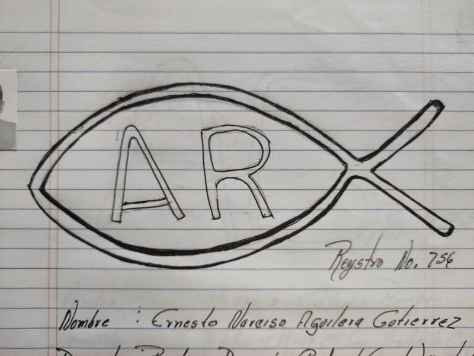 AR
Registro No. 756
Nombre : Ernesto Narciso Aguilera Gutierrez